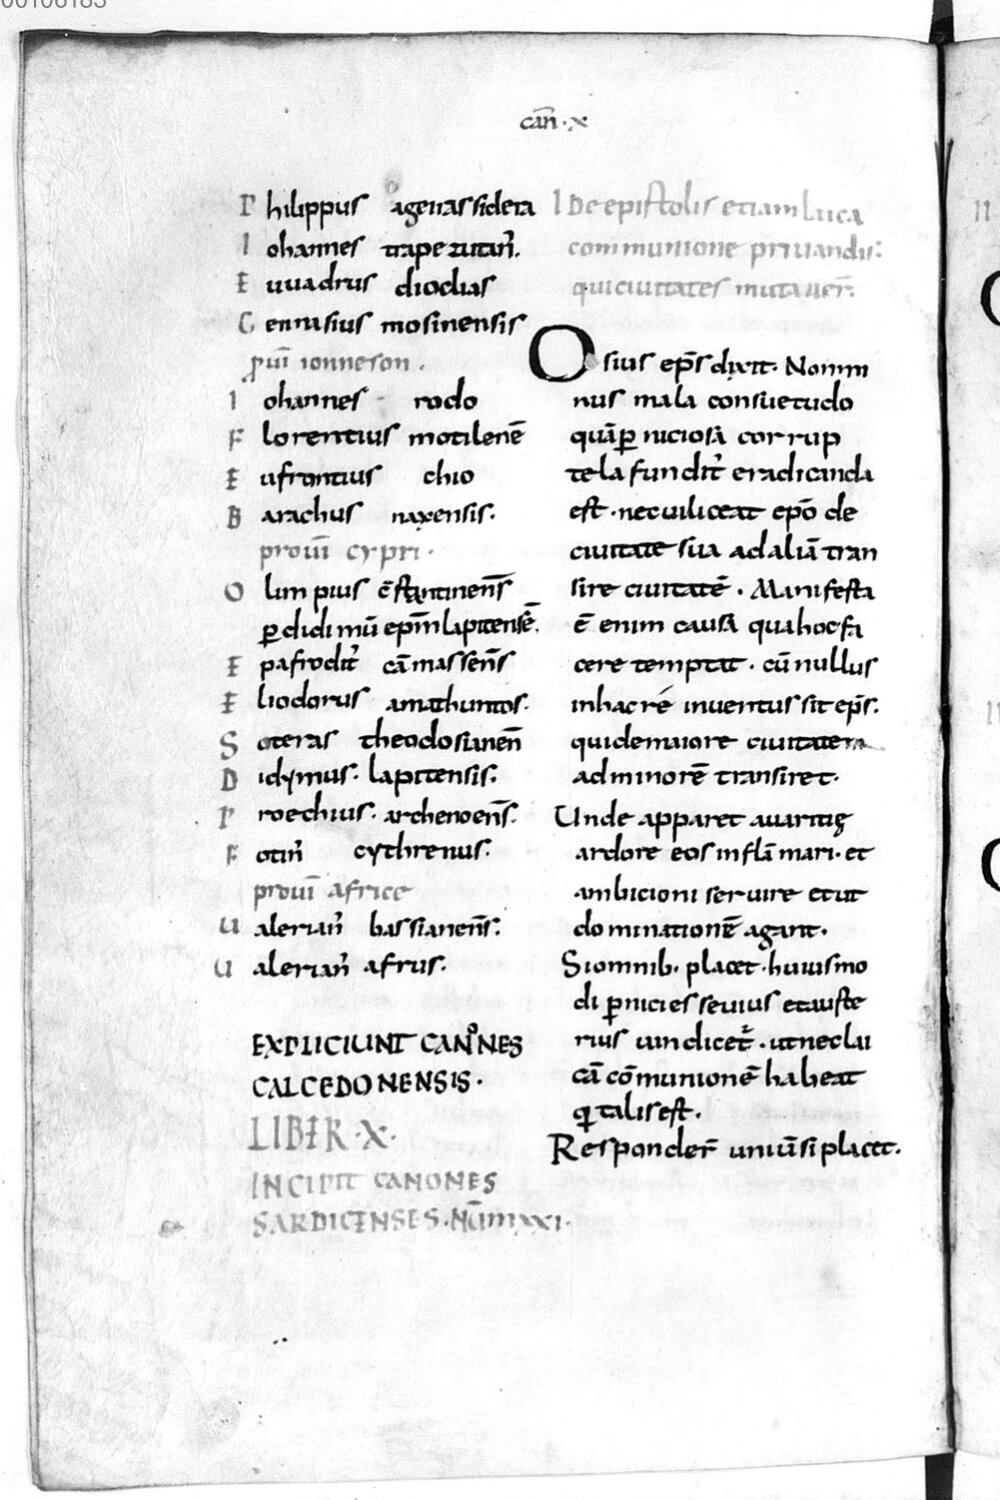 cān·x
Philippus agenassideta
Iohannes trapezutan̄.
Euuadrus diodias
Gennasius mosinensis
ꝓuī ionneson.
Iohannes rodo
Florentius motilenē
Eufrontius chio
Barachus naxensis.
prouī cypri·
Olimpius c̄stantinen̄s
ꝑdidimū ep̄m lapitensē.
Epafrodit̄ cāmassen̄s
Eliodorus amathuntos.
Soteras theodosianen̄
Didymus. lapitensis.
Proechius. archenoen̄s.
Fotin̄ cythrenus.
prouī africe
Ualerian̄ bassianen̄s.
Ualerian̄ afrus.
EXPLICIUNT CANONES
CALCEDONENSIS·
LIBER·X·
INCIPIT CANONES
SARDICENSES·NŪM XXI·
I De epistolis etiam laica
communione priuandis:
qui ciuitates mutauer̄.
Osius ep̄s dixit. Nonmi
nus mala consuetudo
quā ꝑniciosa corrup
tela fundit̄ eradicanda
est. nec uiliceat ep̄o de
ciuitate sua ad aliā tran
sire ciuitatē. Manifesta
ē enim causa qua hoc fa
cere temptat. cū nullus
in hac ré inuentus sit ep̄s.
qui de maiore ciuitatem
ad minorē transiret.
Unde apparet auaritię
ardore eos inflāmari. et
ambicioni seruire et ut
dominationē agant.
Si omnib. placet. huiusmo
di ꝑnicies seuius et auste
rius uindicet̄. ut nec lai
cā cōmunionē habeat
qi talis est.
Responder̄ uniū si placet.